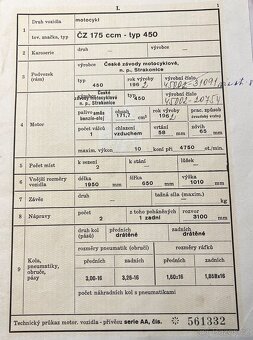 I.
1
Druh vozidla motocykl
tov. značka, typ ČZ 175 ccm - typ 450
2 Karoserie druh výrobní číslo
3 Podvozek (rám)
výrobce České závody motocyklové, n. p., Strakonice
typ 450 rok výroby 1962 výrobní číslo
4 Motor
výrobce České závody motocyklové, n. p., Strakonice
typ 450 rok výroby 1962 výrobní číslo
palivo směs benzin-olej
171,7 cm³
počet válců 1 chlazení vzduchem vrtání 58 mm zdvih 65 mm
max. výkon 10 při 4750 ot./min.
5 Počet míst k sezení 2 k stání lůžek
6 Vnější rozměry vozidla délka 1950 mm šířka 650 mm výška 1010 mm
7 Závěs druh tažná síla (maxim.) kg
8 Nápravy počet 2 z toho poháněných 1 zadní rozvor 3100 mm
9 Kola, pneumatiky, obruče, pásy
druh kol (pásů) předních drátěné zadních drátěné
rozměry pneumatik (obručí) rozměry ráfků
předních zadních předních zadních
3,00-16 3,25-16 1,60x16 1,85Bx16
počet náhradních kol s pneumatikami
Technický průkaz motor. vozidla - přívěsu serie AA, čís. 561332